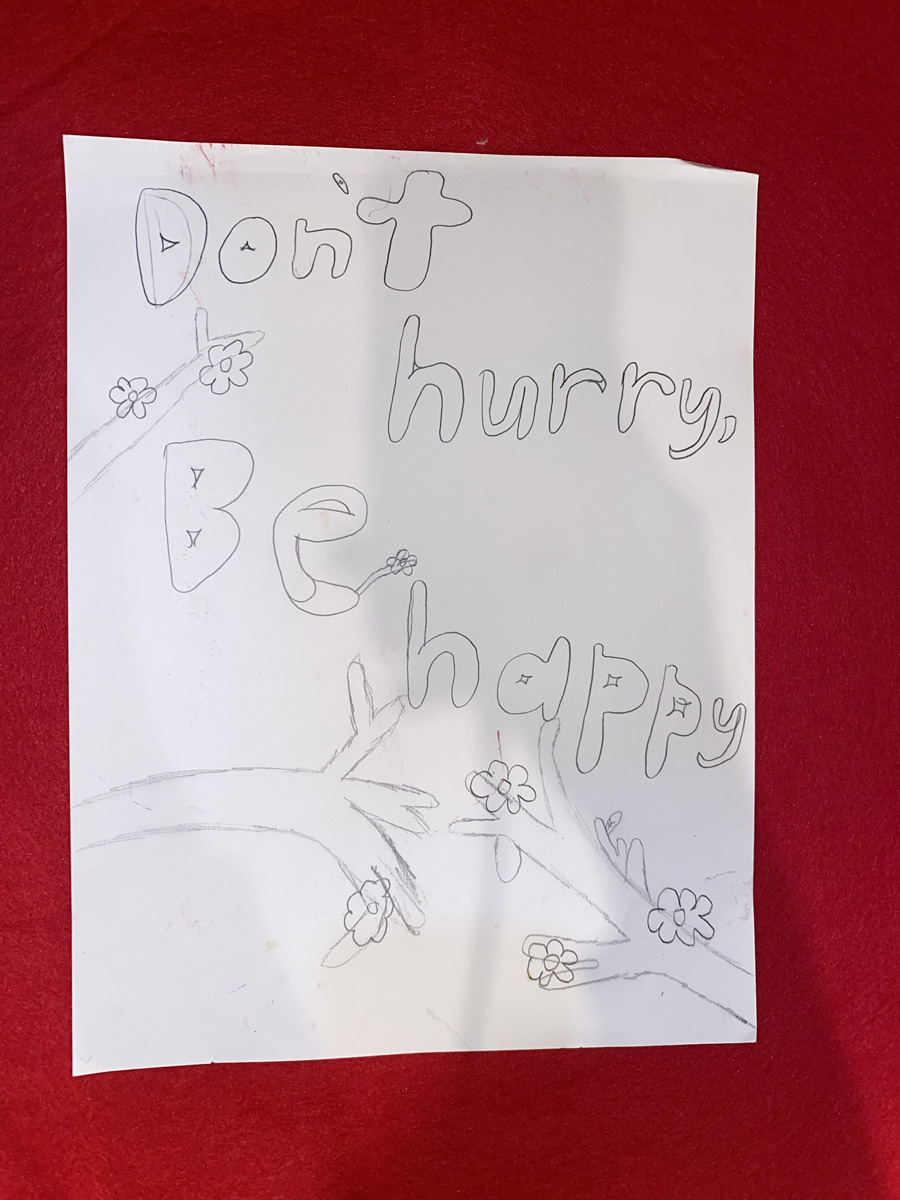 Don't
hurry,
Be
happy